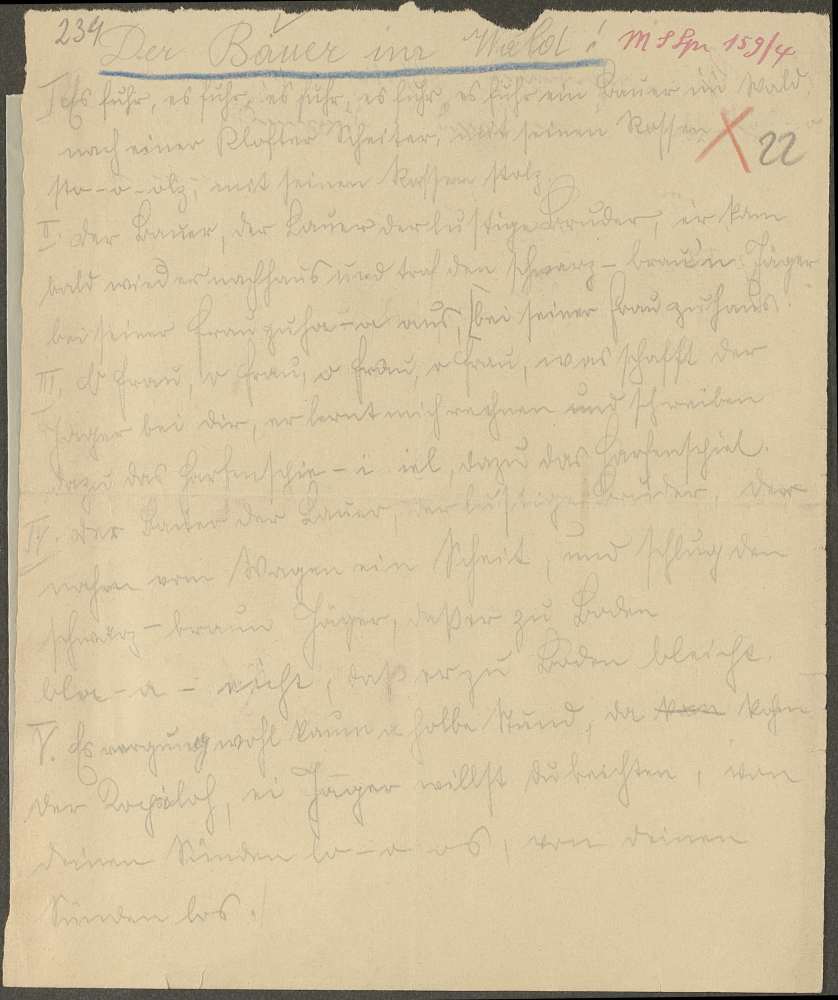 239 Der Bauer im Wald! M S Spr 159/4
I. Es fuhr, es fuhr, es fuhr, es fuhr, es fuhr ein Bauer im Wald,
nach einer Klafter Scheiter, mit seinen Rossen X 22
sto-o-olz, mit seinen Rossen stolz.
II. Der Bauer, der Bauer der lustige Bruder, er kam
bald wieder nachhaus und traf den schwarz-braun Jäger
bei seiner Frau zuha-a-aus, [bei seiner Frau zuhaus.
III. O Frau, o Frau, o Frau, o Frau, was schafft der
Jäger bei dir, er lernt mich rechnen und schreiben
dazu das Harfenschpie-i-iel, dazu das Harfenschpiel.
IV. Der Bauer der Bauer, der lustige Bruder, der
nahm vom Wagen ein Scheit, und schlug den
schwarz-braun Jäger, daß er zu Boden
bla-a-eicht, daß er zu Boden bleicht.
V. Es vergung wohl kaum a halbe Stund, da kam
der, ei Jäger willst du beichten, von
deinen Sünden lo-o-os, von deinen
Sünden los.